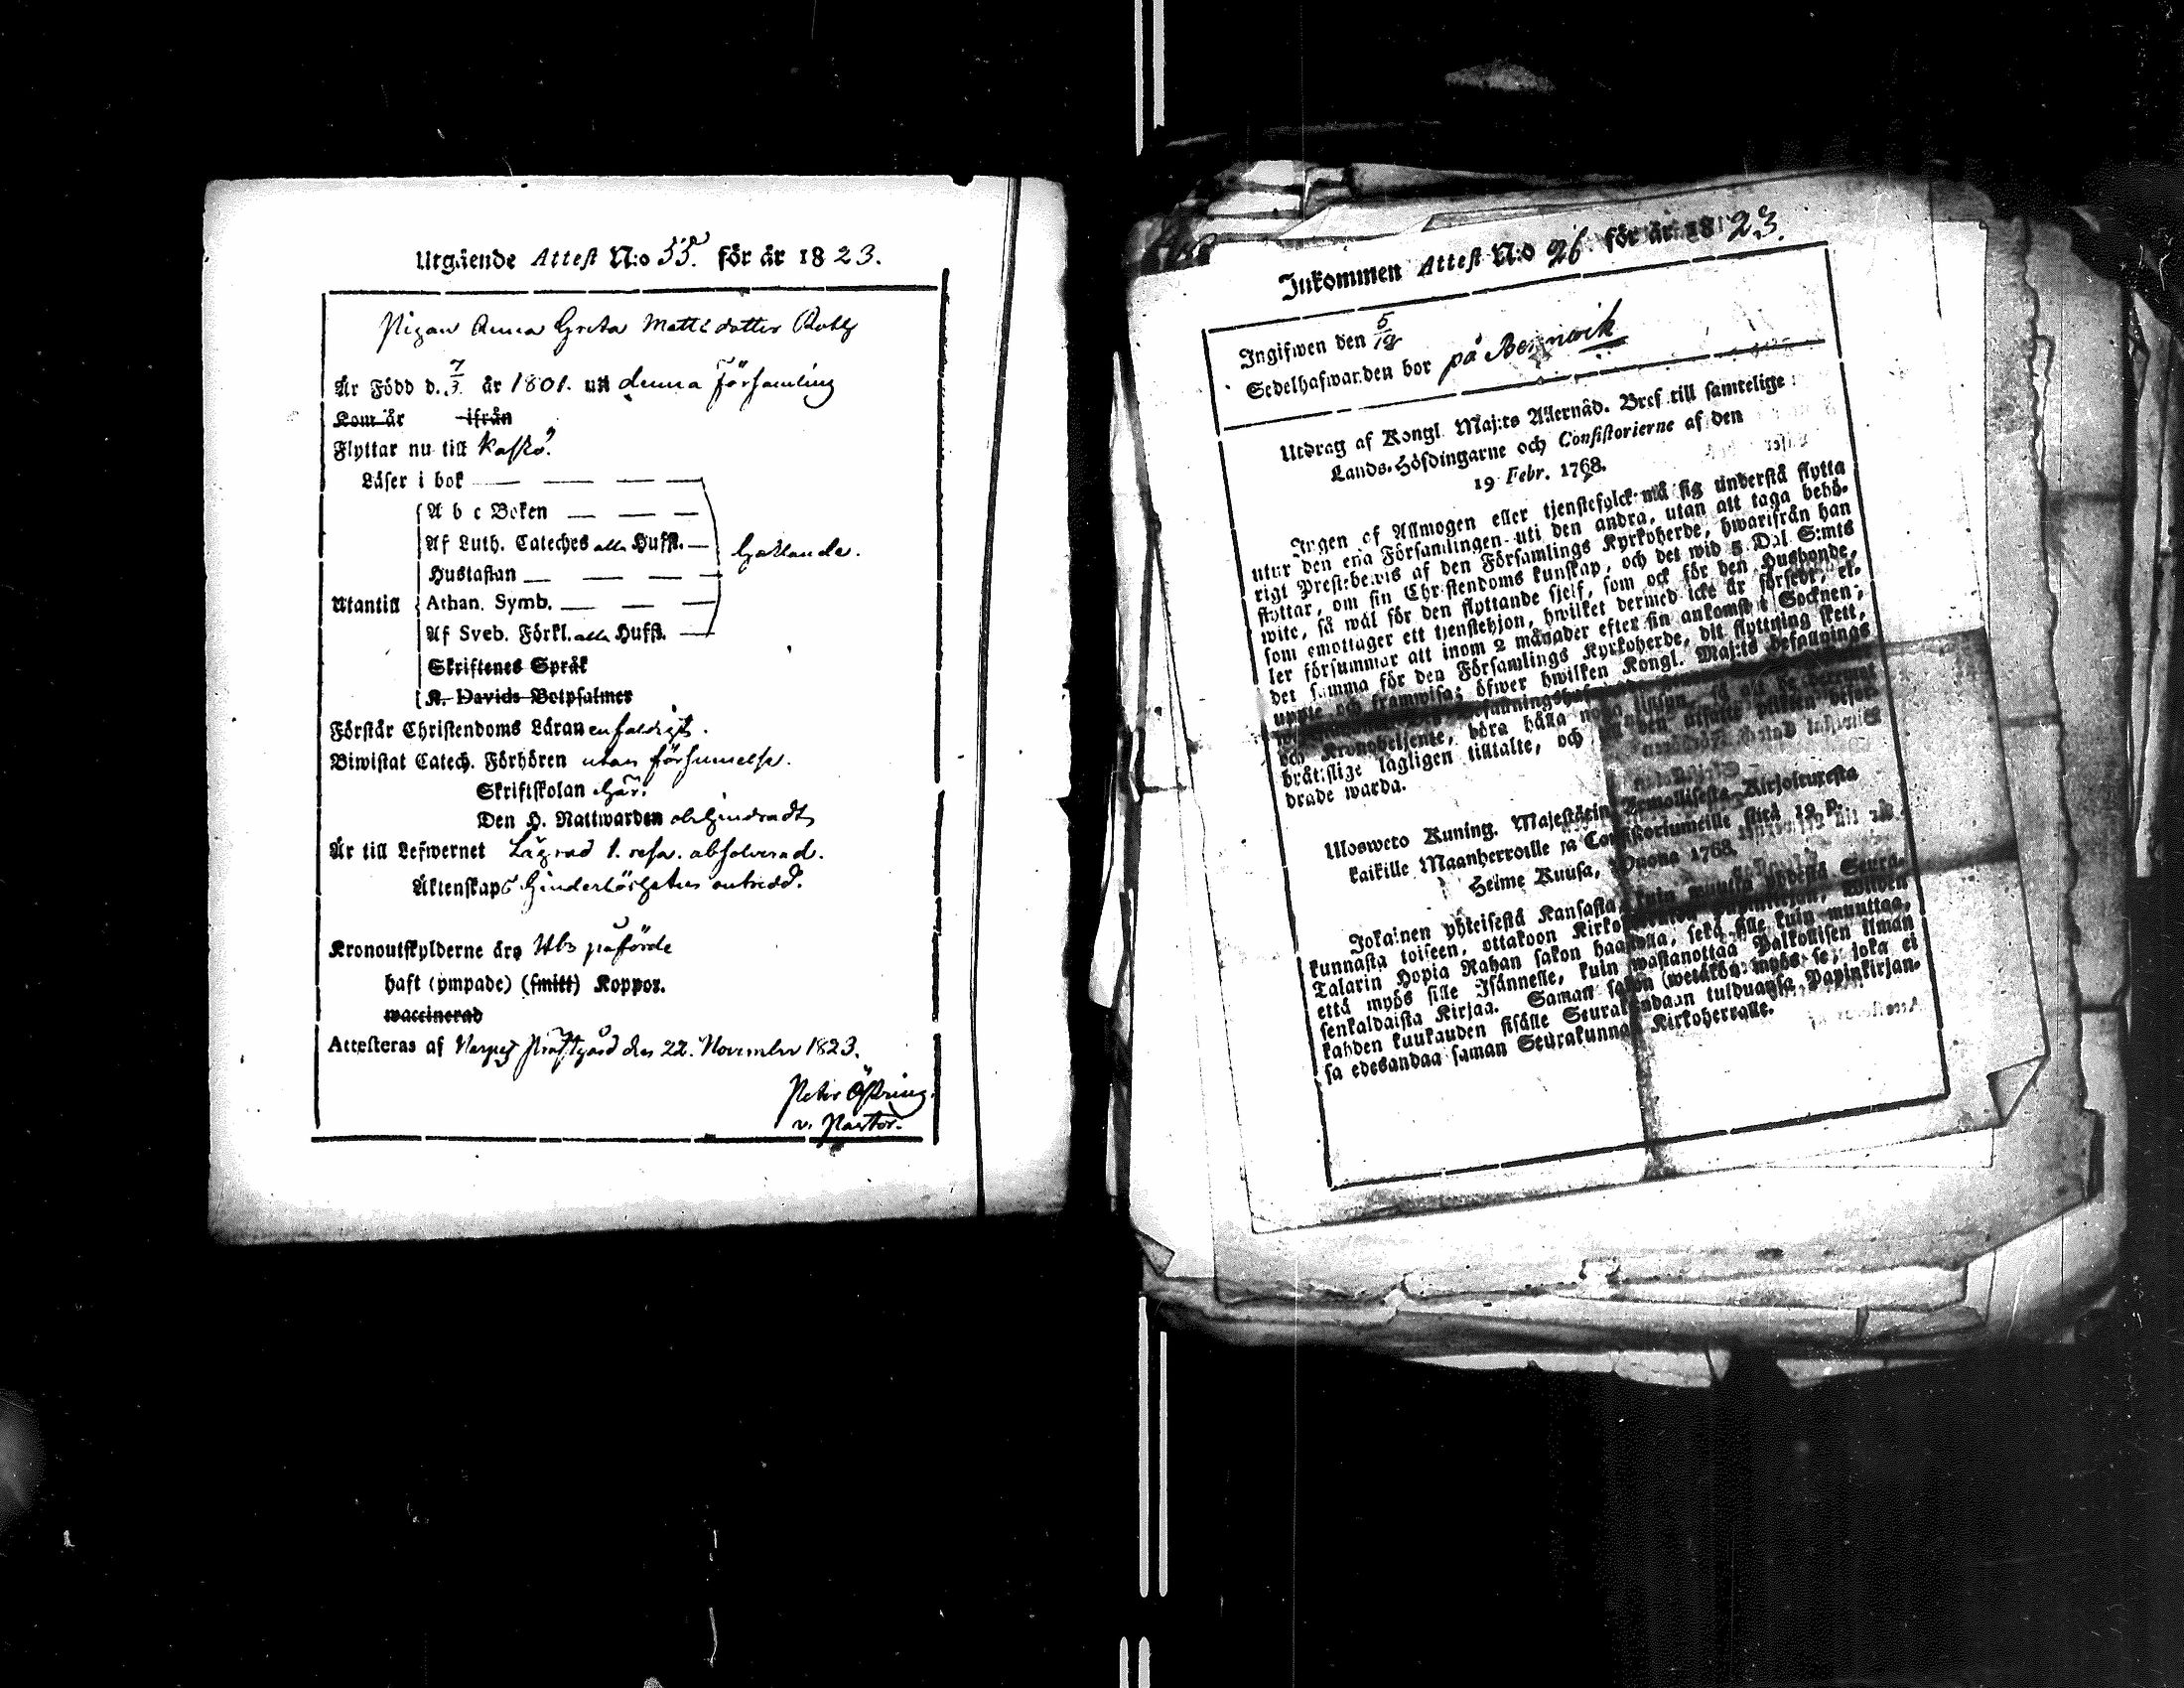 Utgående Attest N:o 55. för år 1823.
Pigan Anna Greta Mattsdotter
Är Född d. 7/3. år 1801. uti denna Församling
Kom år ifrån
Flyttar nu till Kaskö.
Läser i bok
A b c Boken
Af Luth. Cateches alla Hufst.
Hustaflan
Utantill Athan. Symb.
Af Sveb. Förkl. alla Hufst.
Gällande.
Skriftenes Språk
K. Davids Botpsalmer
Förstår Christendoms Läran enfaldigt.
Biwistat Catech. Förhören utan försummelse.
Skriftskolan här.
Den H. Nattwarden obehindradt
Är till Lefwernet Lägrad 1. resa. absolverad.
Äktenskaps hinderlösheten outredd.
Kronoutskylderne äro påförde
haft (ympade) (smitt) Koppor.
waccinerad
Attesteras af Nerpes Prästgård den 22. November 1823.
Peter Östring.
v. Pastor.
Inkommen Attest N:o 26. för år 1823.
Ingifwen den 5/12
Sedelhafwarden bor på
Utdrag af Kongl. Maj:ts Allernåd. Bref till samtelige
Lands-Höfdingarne och Consistorierne af den
19 Febr. 1768.
Ingen af Allmogen eller tjenstefolck må sig understå flytta
utur den ena Församlingen uti den andra, utan att taga behö-
rigt Prestebewis af den Församlings Kyrkoherde, hwarifrån han
flyttar, om sin Christendoms kunskap, och det wid 5 Dal. S:mts
wite, så wäl för den flyttande sjelf, som ock för den Husbonde,
som emottager ett tjenstehjon, hwilket dermed icke är försedt, el-
ler försummar att inom 2 månader efter sin ankomst i Socknen,
det samma för den Församlings Kyrkoherde, dit flyttning skett,
uppte och framwisa; öfwer hwilken Kongl. Maj:ts befallnings
och Kronobetjente, böra hålla noga
brätslige lagligen tilltalte, och
drade warda.
Ulosweto Kuning. Majestätin Armollisesta Kirjoituxesta
kaikille Maanherroille ja Consistoriumeille sitä 19 p.
Helme Kuusa, Wuona 1768.
Jokainen yhteisestä Kansasta, kuin muutta yhdestä Seura-
kunnasta toiseen, ottakoon Kirkoherralda
Talarin Hopia Rahan sakon haastolla, sekä sille kuin muuttaa,
että myös sille Isännelle, kuin wastanottaa Palkollisen ilman
senkaldaista Kirjaa. Saman sakon wetäkön myös se, joka ei
kahden kuukauden sisälle Seurakundaan tulduansa, Papinkirjan-
sa edesandaa saman Seurakunnan Kirkoherralle.